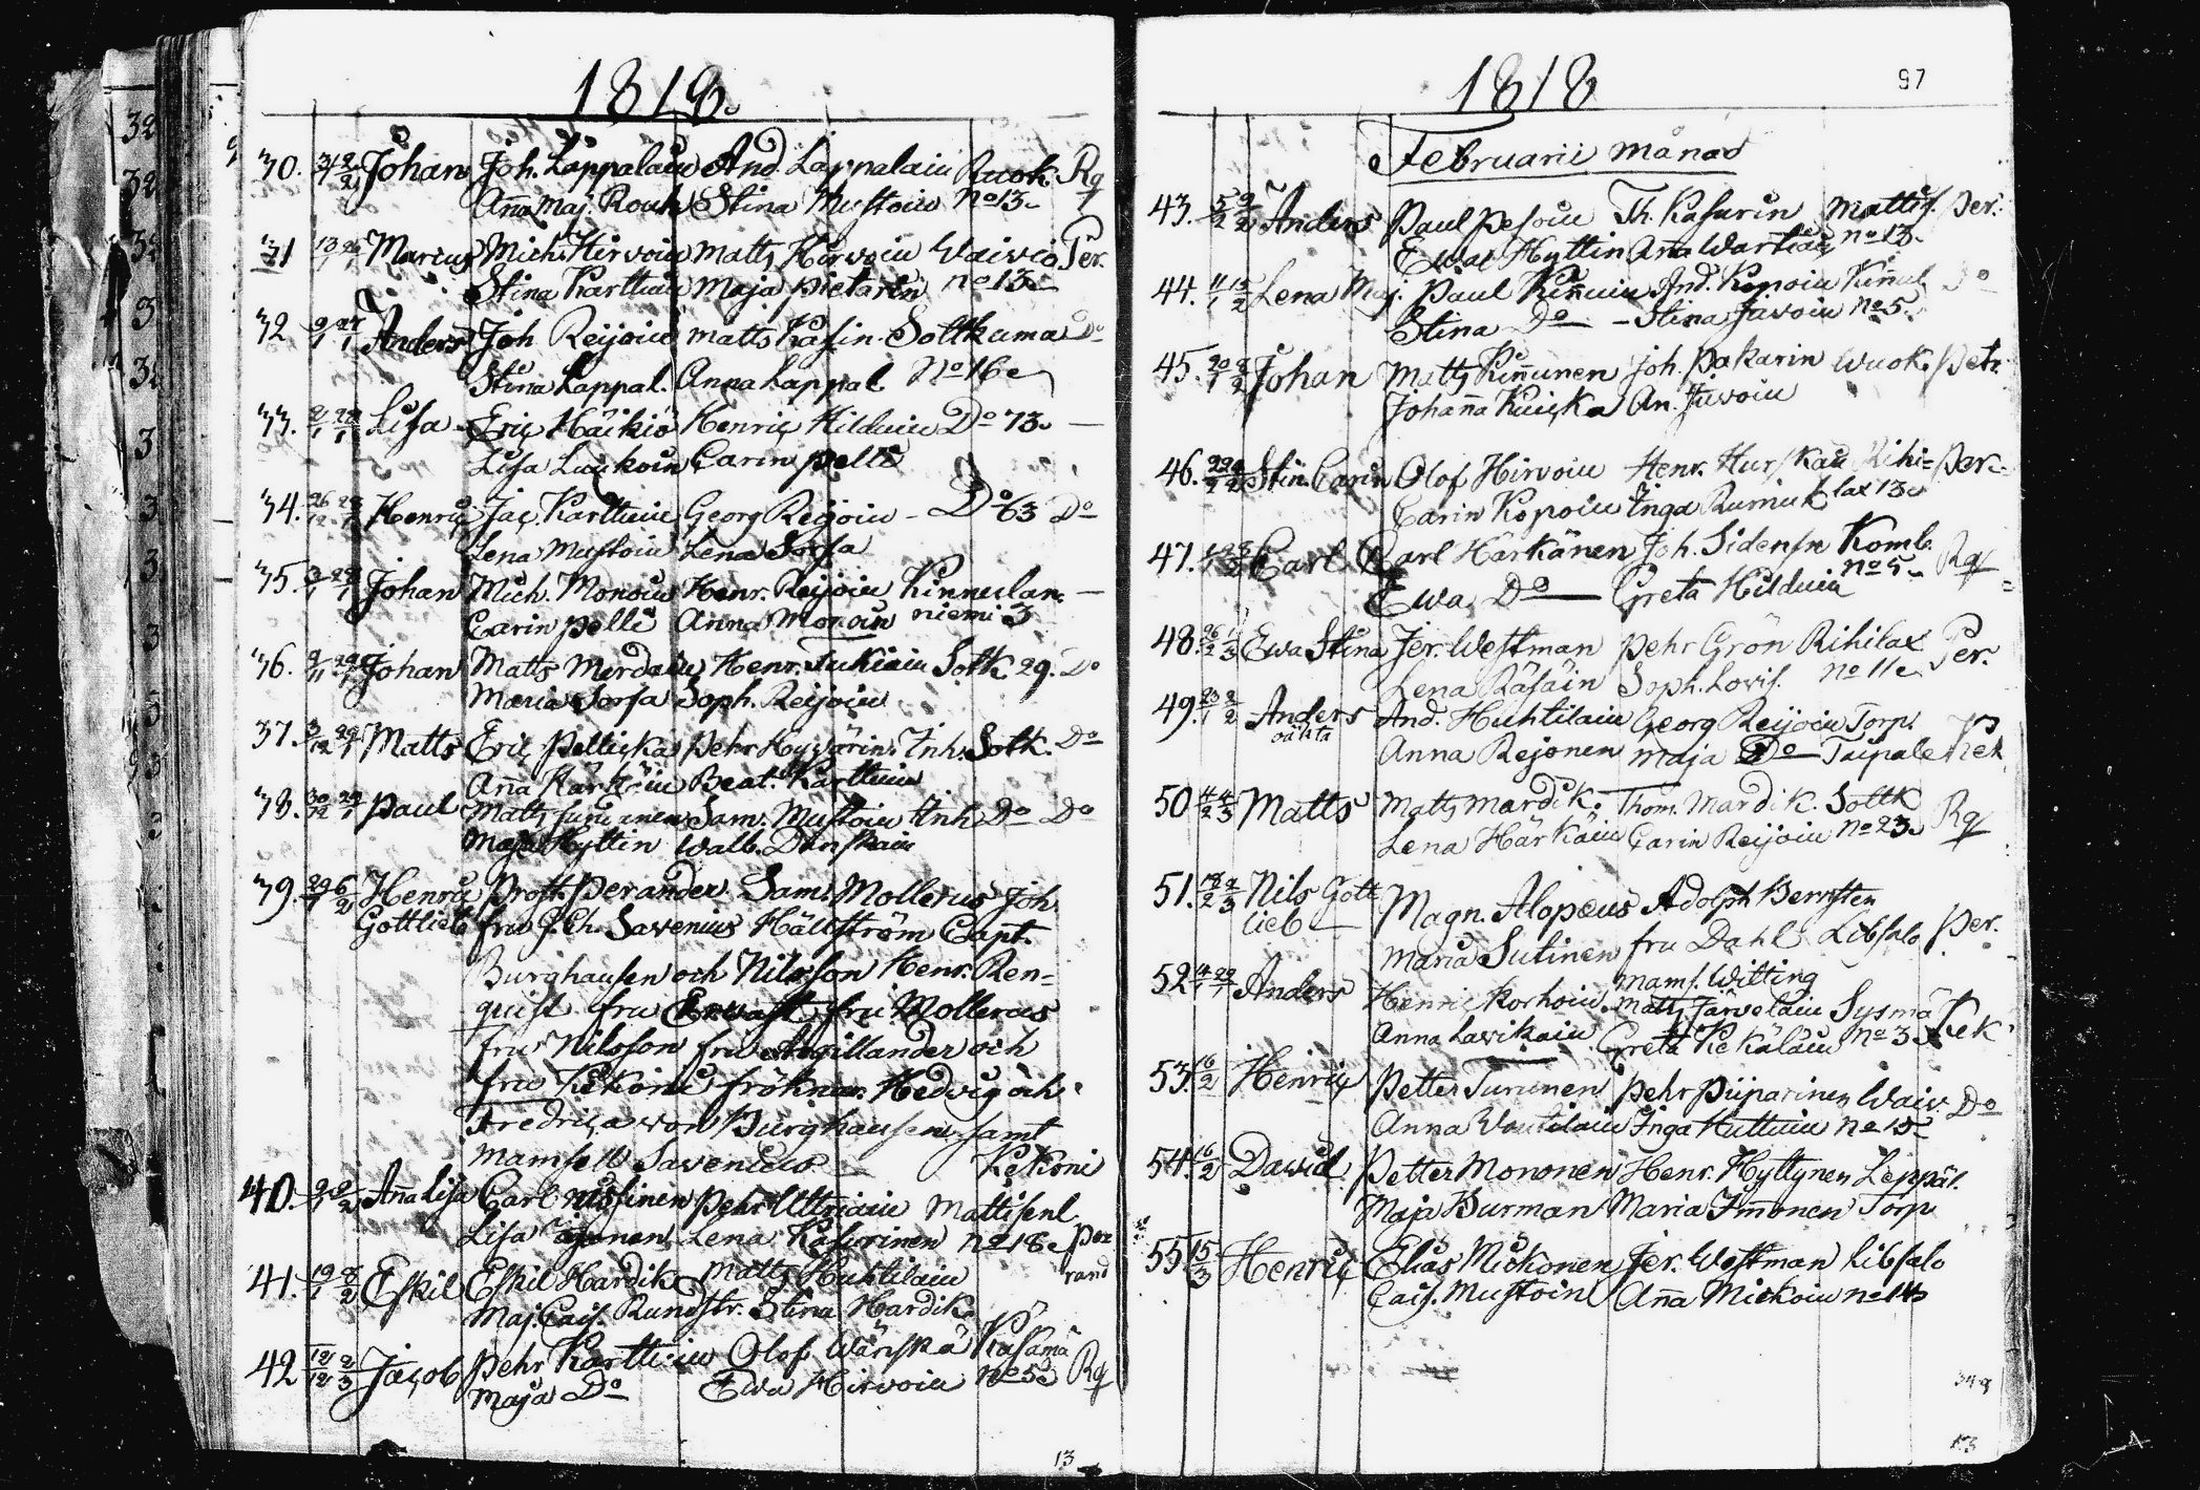 1818.
30. 31/1 2/2 Johan Joh. Lappalain And. Lappalain Ruok. Rq
Aña Maj. Rouh Stina Mustoin No 13.
31 13/1 Marcus Mich. Hirvoin Matts Hirvoin Waivio Per.
Stina Karttuin Maja Pietarin no 13
32 9/1 27/1 Anders Joh Reijoin Matts Kasin. Sottkuma Do
Stina Lappal. Anna Lappal No 16
33. 2/1 28/1 Lisa Eric Häikiö Henric Hilduin Do 13.
Lisa Luukoin Carin Pelle
34. 26/12 28/1 Henric Jac. Karttuin Georg Reijoin Do 63 Do
Lena Mustoin Lena Sorsa
35. 3/1 28/1 Johan Mich. Monoin Henr. Reijoin Kinnulan
Carin Pelle Anna Monoin niemi 3
36. Johan Matts Henr. Sotk 29. Do
Maria Sorsa Soph. Reijoin
37. 3/12 29/1 Matts Eric Pellicka Pehr Hyvärin Inh. Sotk. Do
Aña Härköin Beat. Karttuin
38. 30/12 29/1 Paul Matts Sam. Mustoin Inh Do Do
Maja Hyttin Walb. Danskain
39. 29/1 6/2 Henric Prost. Perander. Sam. Mollerus Joh.
Gottlieb fru G. Ch. Savenius Hällström Capt.
Burghausen och Nilsson Henr. Ren=
quist fru Ervast fru Mollerus
fru Nilsson fru Argillander och
fru Kekoni fröknar Hedvig och
Fredrica von Burghausen samt
Mamsell Savenius Kekoni
40. 2/2 Aña Lisa Carl Pehr Mattisenl
Lisa Lena Kasurinen no 18 Per
rand
41. 19/1 8/2 Eskil Eskil Hardik Matts Huhtilain
Maj. Cais. Rundstr. Stina Hardik
42 12/12 2/3 Jacob Pehr Karttuin Olof Wänskä Kasämä
Maja Do Ewa Hirvoin No 5 Rq
13
1818
97
Februarii månad
43. 5/2 Anders Paul Pesoin Th. Kasurin Mattis. Per.
Ewa Hyttin Aña Wartiain no 13.
44. 11/1 Lena Maj. Paul Kiñuin And. Koponin Kiñul Do
Stina Do Stina Juvoin No 5.
45. 20/1 Johan Matts Kiñunen Joh. Pakarin Wuok. Petr
Johaña Kuicka An. Juvoin
46. Stin. Carin Olof Hirvoin Henr. Hurskain Rihi= Per
Carin Kopoin Inga Rumiuk lax 13
47. Carl Carl Härkänen Joh. Sidensn Komb. Rq
Ewa Do Greta Hilduin no 5
48. 26/2 1/3 Ewa Stina Jer. Westman Pehr Grön Rihilax Per.
Lena Räsäin Soph. Lovis. No 11
49. 23/1 Anders And. Huhtilain Georg Reijoin Torp.
oäkta Anna Rejonen Maja Do Taipale Kek
50 4/3 Matts Matts Mardik. Thom. Mardik. Sottk Rq
Lena Härkäin Carin Reijoin No 23.
51. 18/2 2/3 Nils Gott Magn. Alopæus Adolph Berrsten
lieb Maria Sutinen fru Dahl Libsalo Per.
Mams. Wilting
52 Anders Henric Korhoin Matts Järvelain Sysmä Kek
Anna Lavikain Greta Kekäläin No 3
53. 16/2 Henric Petter Turunen Pehr Piiparinen Waiv. Do
Anna Woutilain Inga Huttuin no 15
54. 16/2 David Petter Mononen Henr. Hyttynen Leppäl.
Maja Burman Maria Immonen Torp
55. 15/3 Henric Elias Mickonen Jer. Westman Libsalo
Cais. Mustoin Aña Mickoin no 14
349